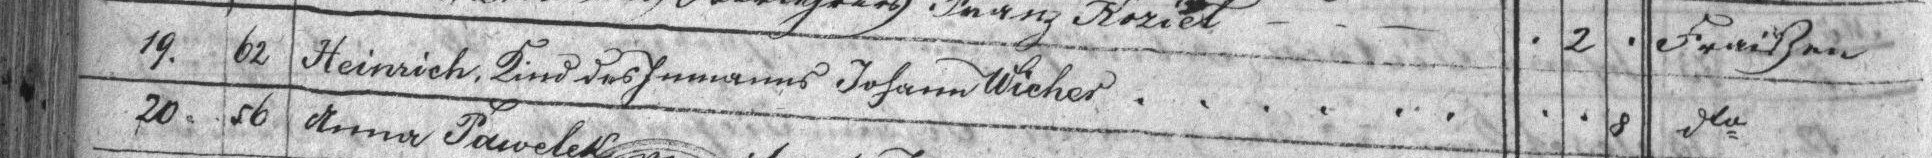 Franz Koziel - - - . 2 . Fraißen
19. 62 Heinrich, Kind des Inmanns Johann Wicher . . . . . . . . 8 dto
20. 56 Anna Pawelek